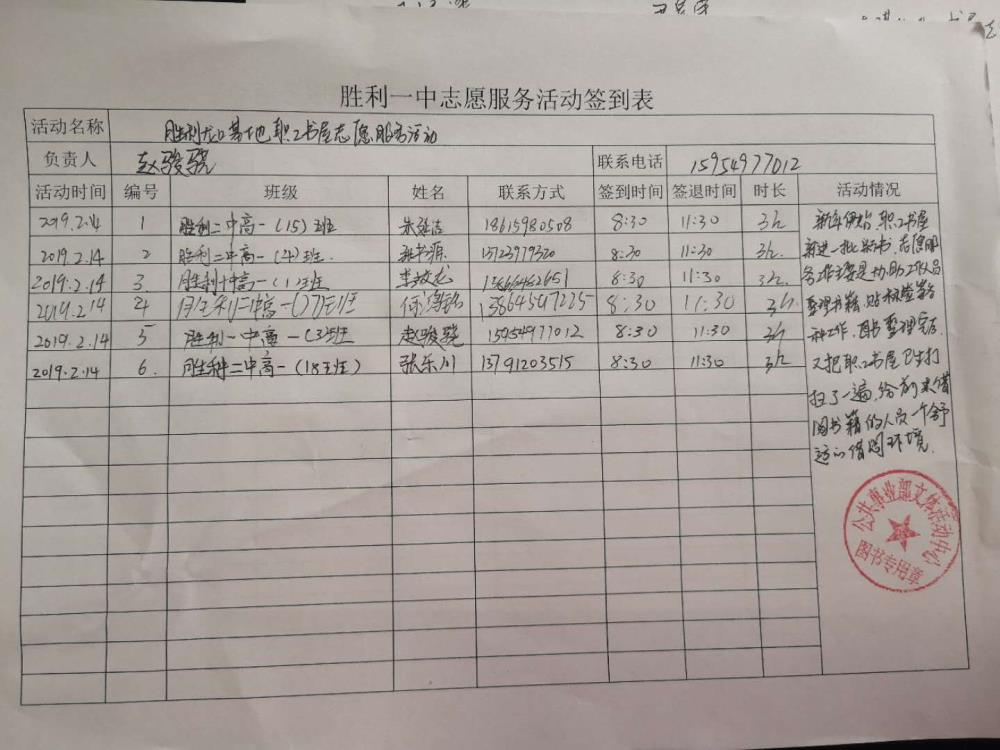 胜利一中志愿服务活动签到表
活动名称 胜利龙口基地职工书屋志愿服务活动
负责人 赵骏骁 联系电话 15954977012
活动时间 编号 班级 姓名 联系方式 签到时间 签退时间 时长 活动情况
2019.2.14 1 胜利二中高一(15)班 18615980508 8:30 11:30 3h
2019.2.14 2 胜利二中高一(4)班 13723979320 8:30 11:30 3h
2019.2.14 3 8:30 11:30 3h
2019.2.14 4 胜利二中高一(17)班 13864547225 8:30 11:30 3h
2019.2.14 5 胜利一中高一(3)班 赵骏骁 15954977012 8:30 11:30 3h
2019.2.14 6. 胜利二中高一(18班) 张乐川 13791203515 8:30 11:30 3h
新年伊始,职工书屋
新进一批新书,志愿服
务班主要是协助工作人员
整理书籍,贴标签等各
种工作,图书整理完后
又把职工书屋卫生打
扫了一遍,给前来借
阅书籍的人员一个舒
适的借阅环境.
公共事业部文体活动中心
图书专用章